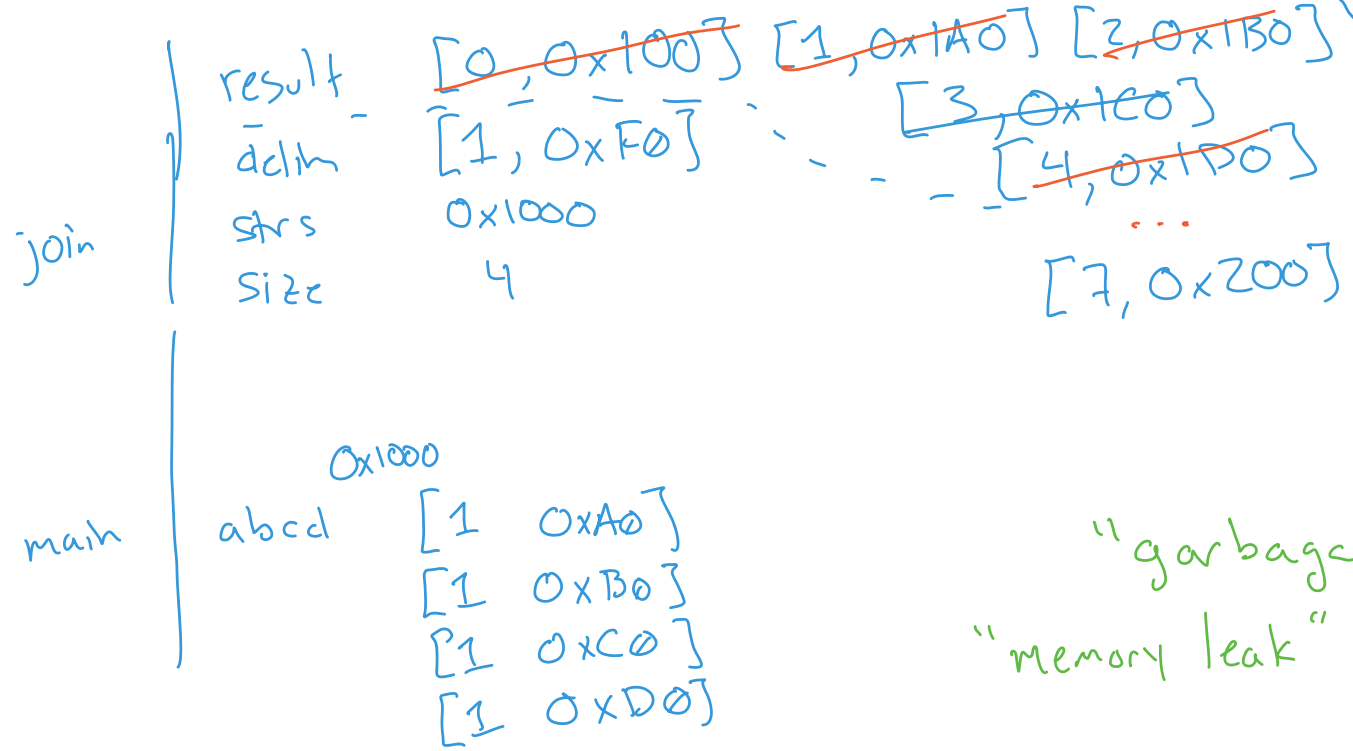 result [0, 0x100] [1, 0x1A0] [2, 0x1B0]
[3, 0x1C0]
delim [1, 0xF0]
[4, 0x1D0]
strs 0x1000
...
join
size 4 [7, 0x200]
0x1000
main abcd [1 0xA0]
[1 0xB0]
[1 0xC0]
[1 0xD0]
"garbage
"memory leak"